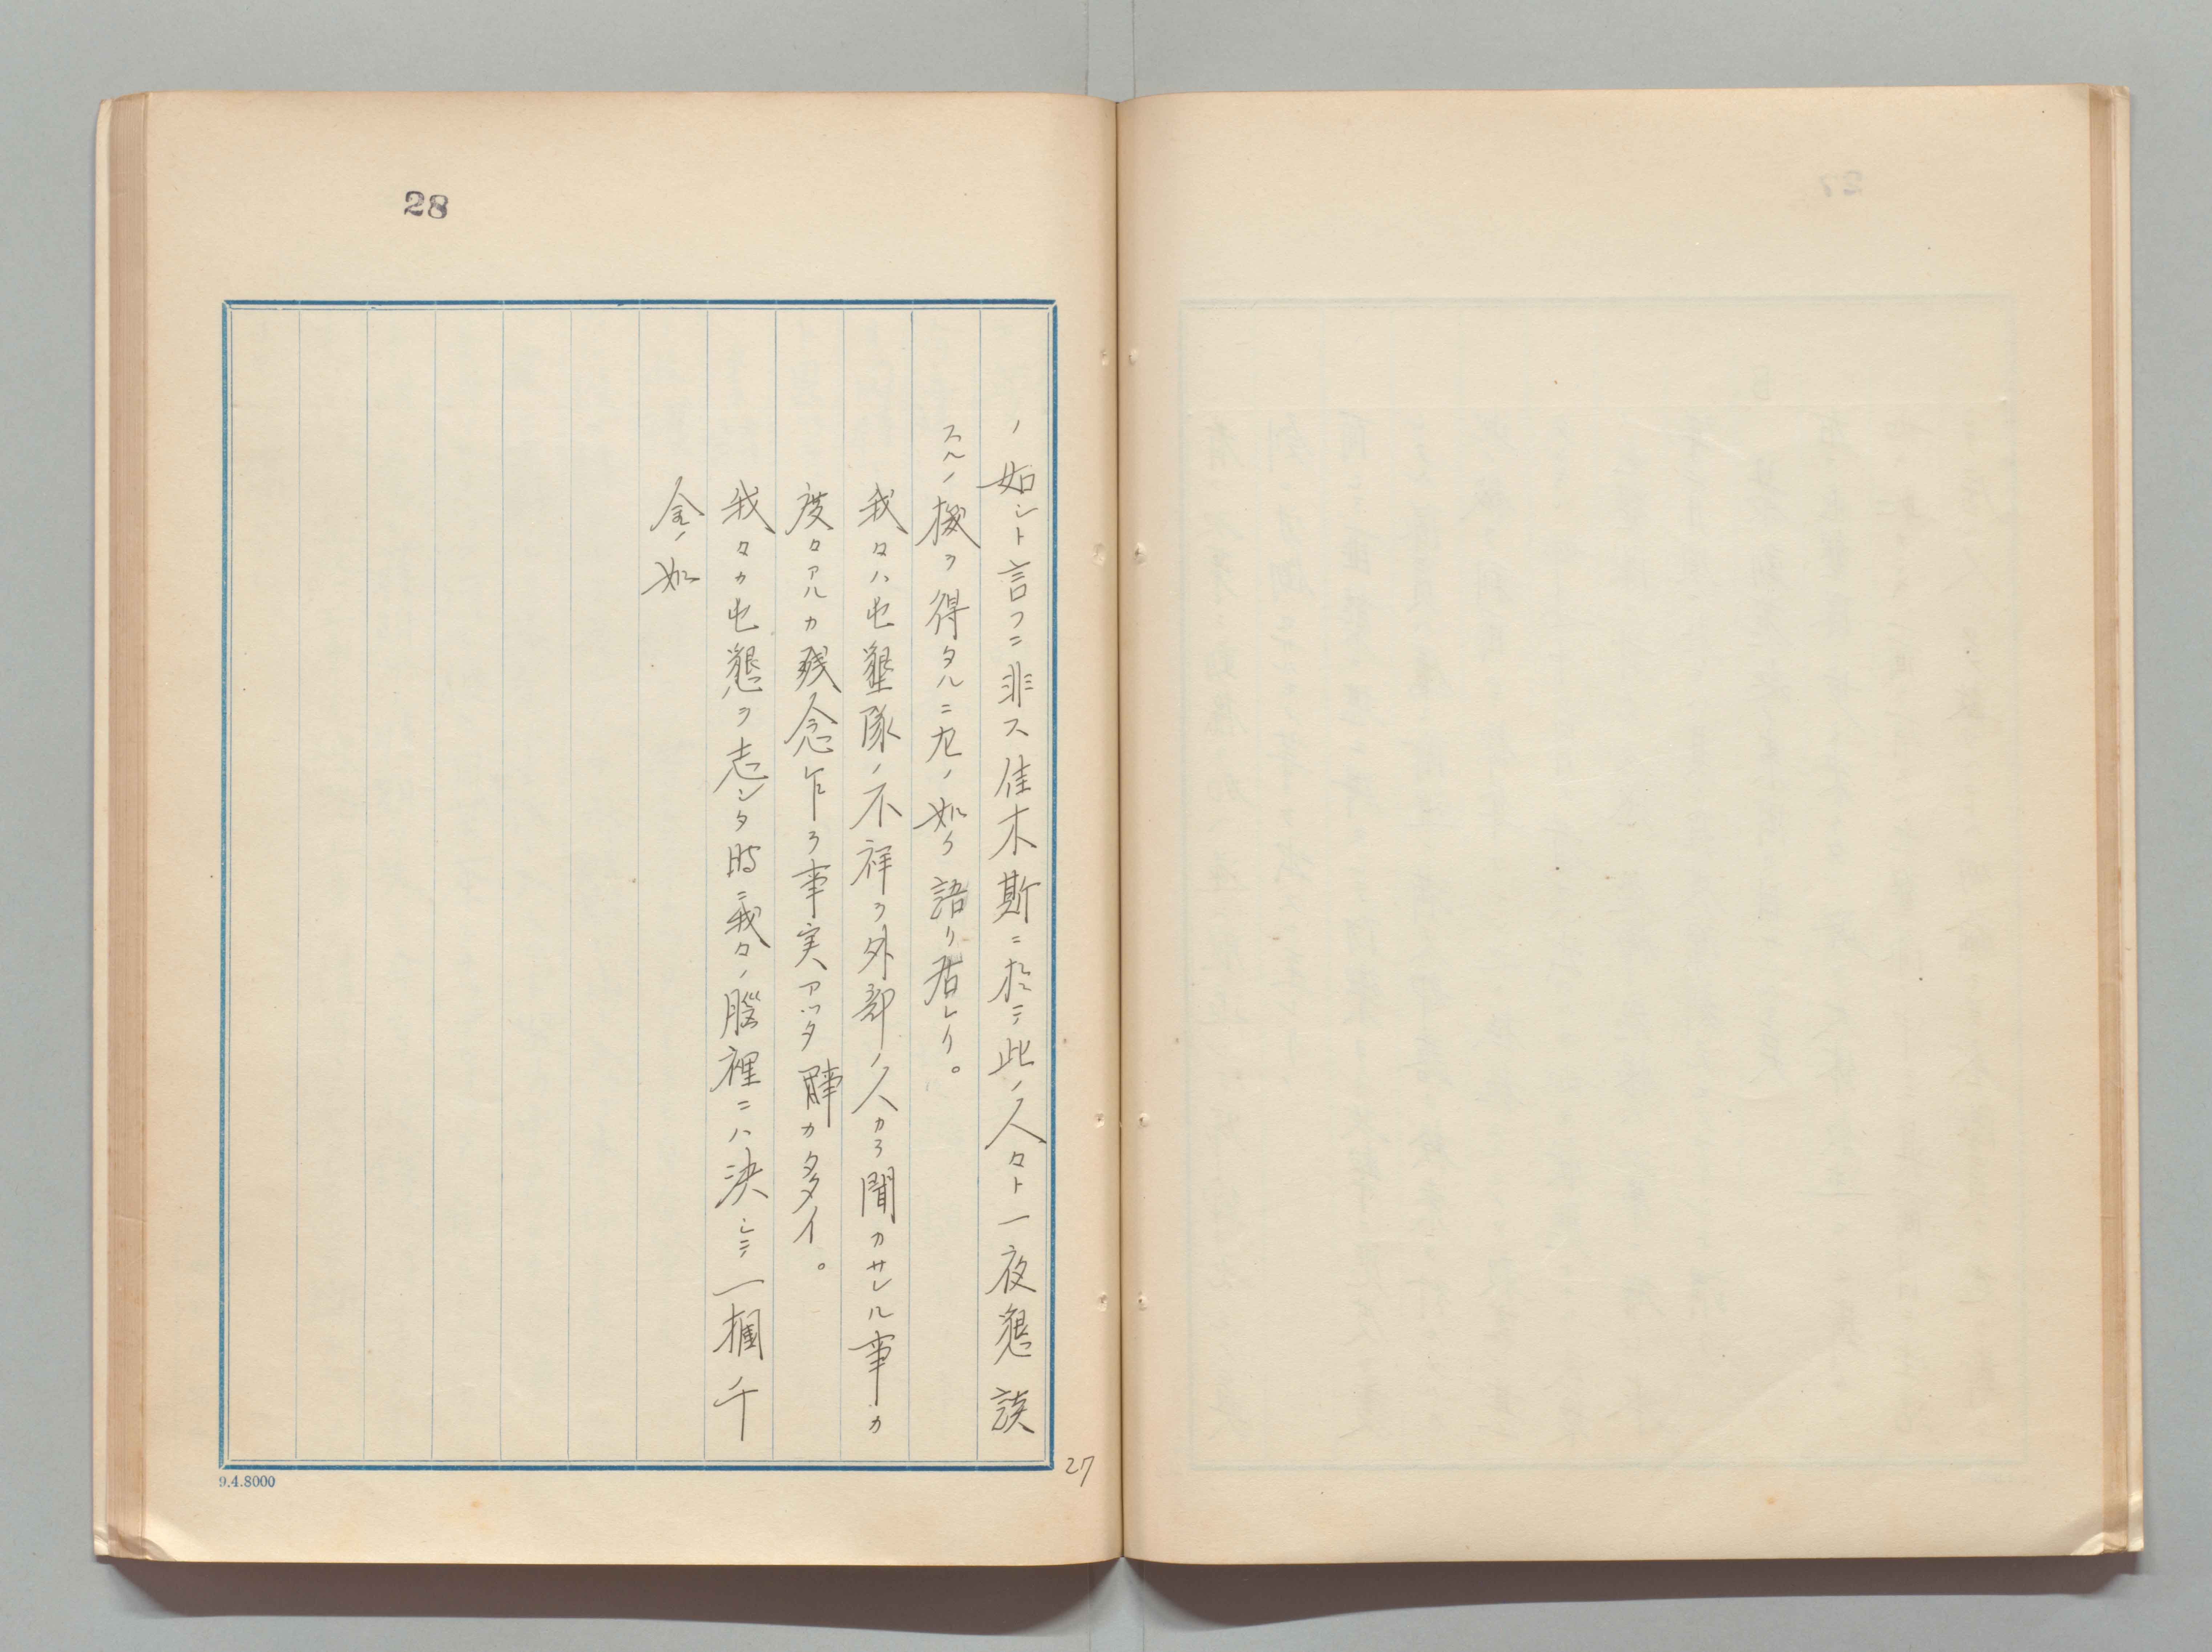 28
ノ如シト言フニ非ス佳木斯ニ於テ此ノ人々ト一夜懇談
スルノ機ヲ得タルニ左ノ如ク語リ居レリ。
我々ハ屯墾隊ノ不祥ヲ外部ノ人カラ聞カサレル事カ
度々アルカ残念乍ラ事実アツタ事カ多イ。
我々カ屯懇ヲ志シタ時ニ我々ノ腦裡ニハ決シテ一摑千
金ノ如
27
9.4.8000